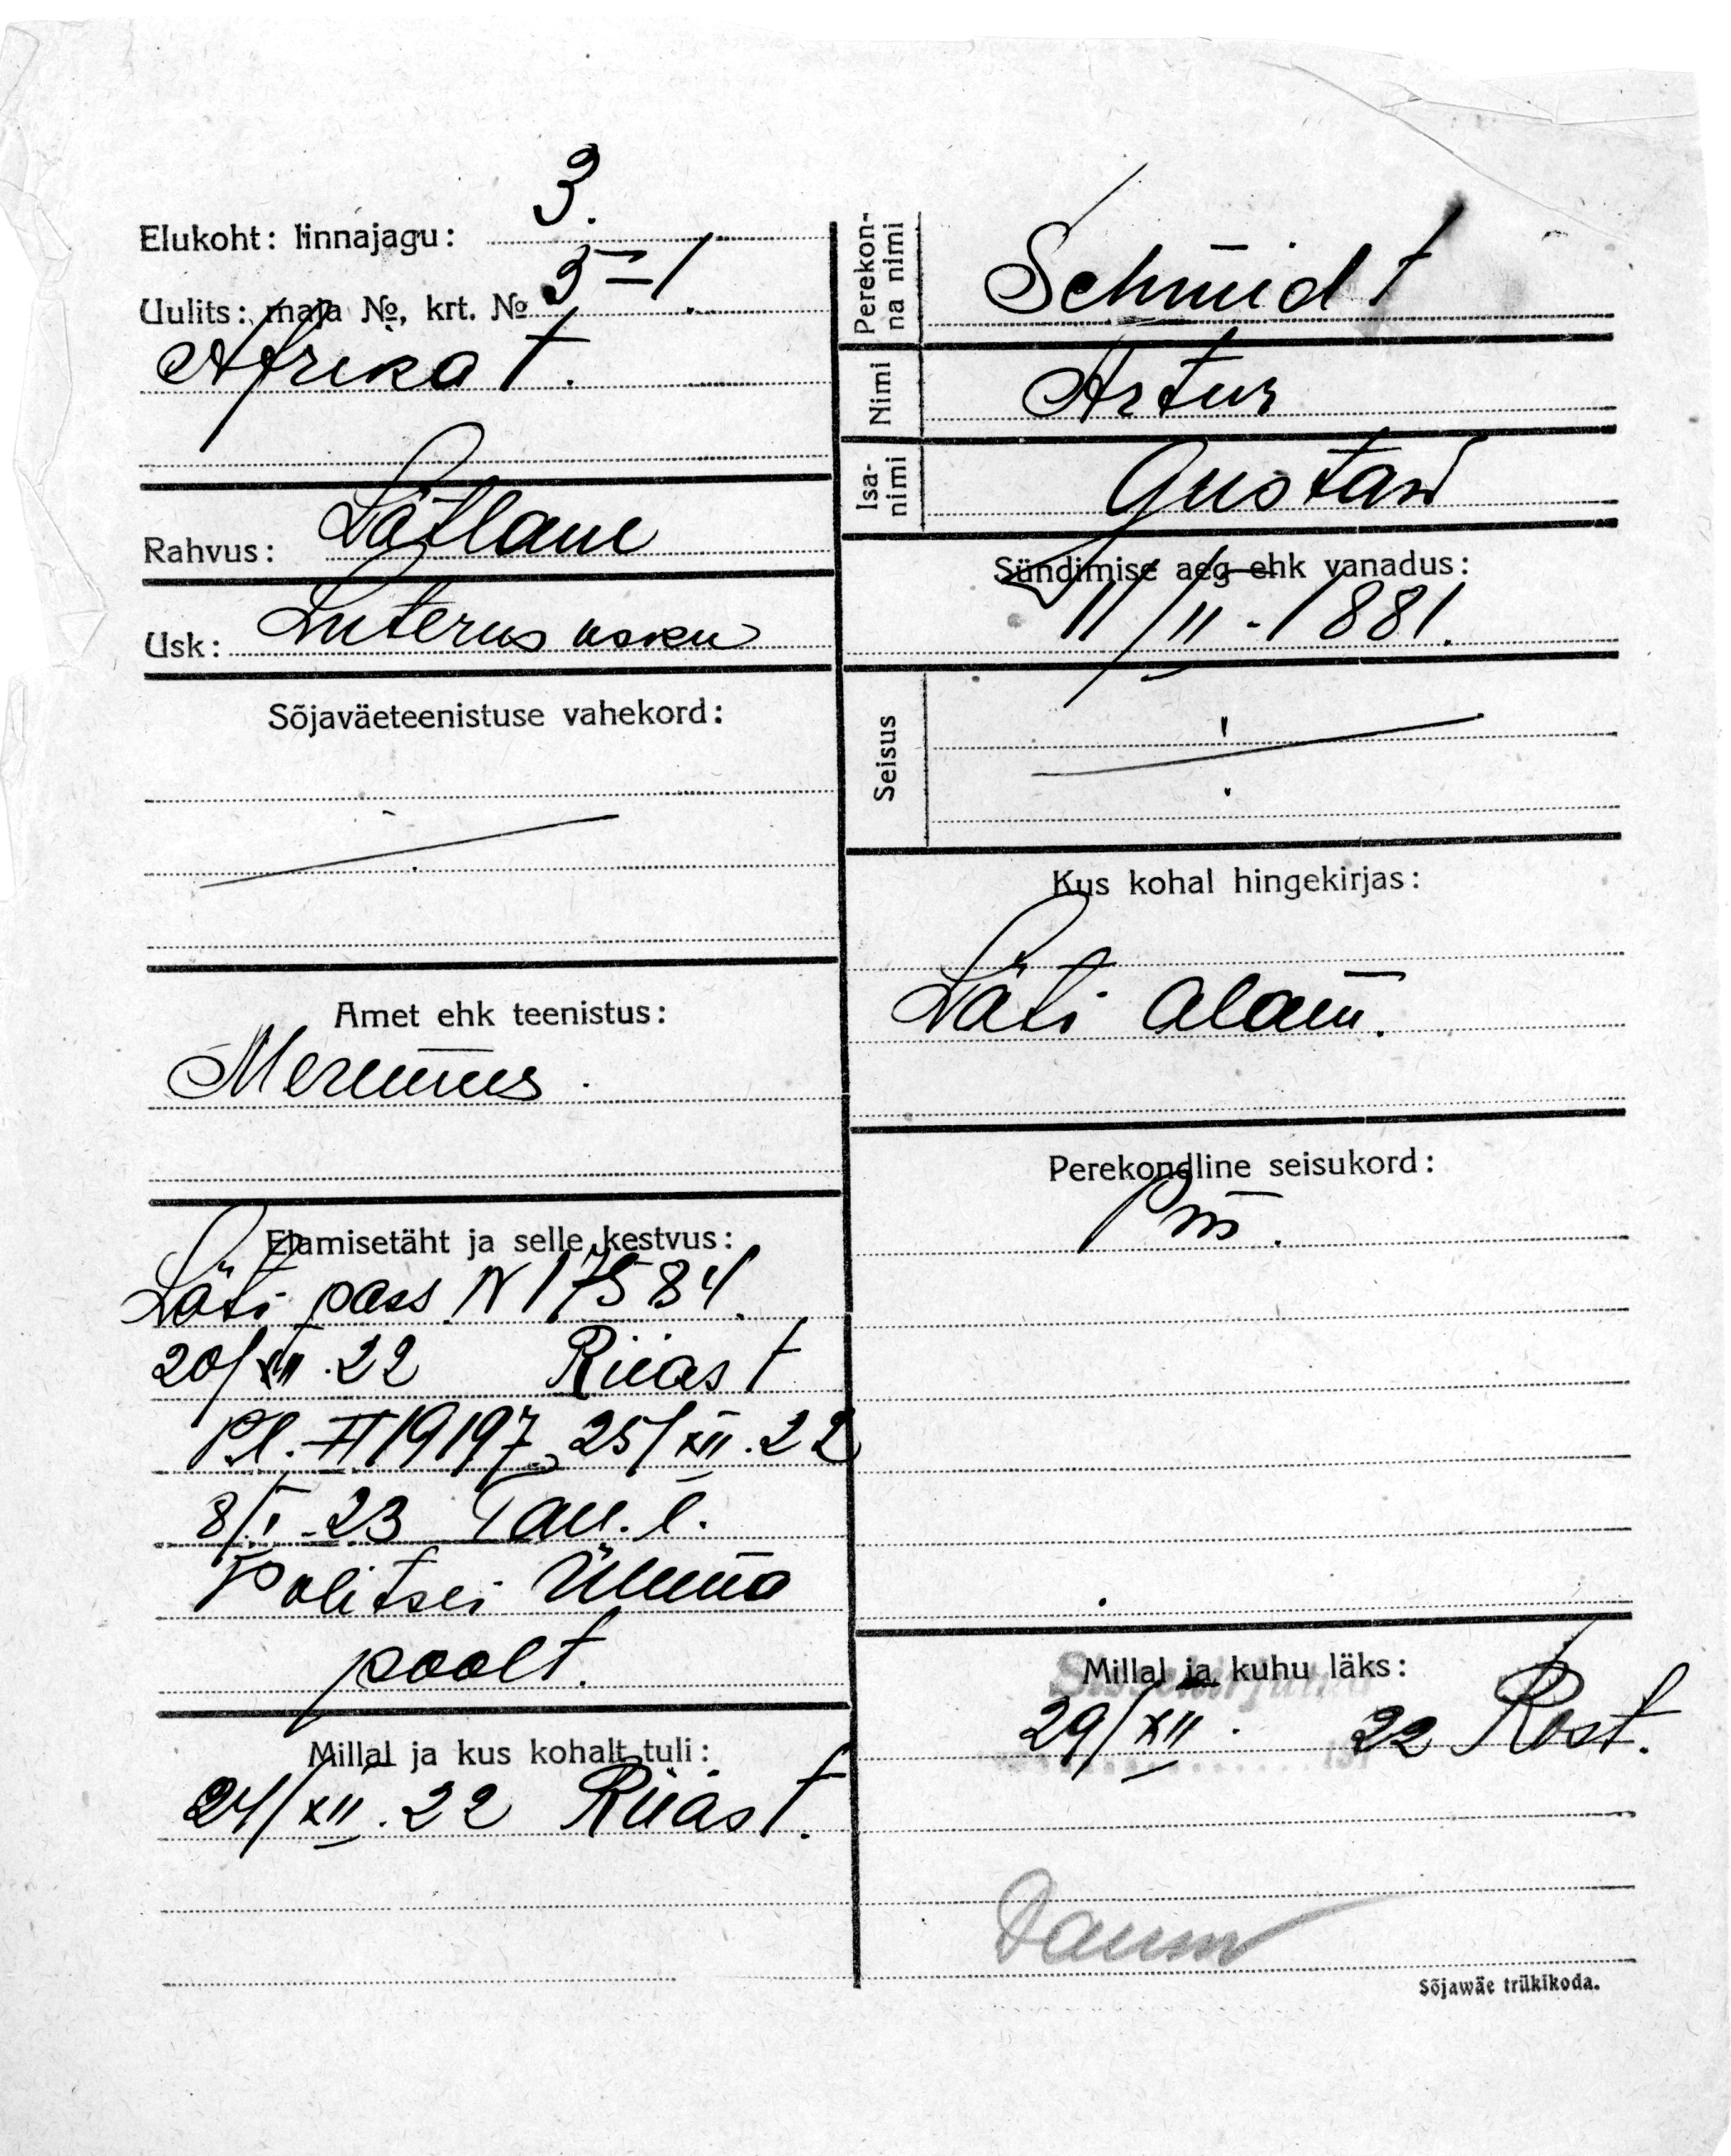 Elukoht: linnajagu: 3.
Uulits: maja №, krt. № 3-1
Afrika t.
Rahvus: Lätlane
Usk: Luterus usku
Sõjaväeteenistuse vahekord:
Amet ehk teenistus:
Meremees.
Elamisetäht ja selle kestvus:
Läti pass N 17584.
20/XII.22 Riiast
Pl. II 19197, 25/XII.22
8/I-23 Tall. l.
Politsei Ülema
poolt.
Millal ja kus kohalt tuli:
24/XII.22 Riiast.
Perekon-
na nimi
Schmidt
Nimi
Artur
Isa-
nimi
Gustaw
Sündimise aeg ehk vanadus:
11/II-1881.
Seisus
Kus kohal hingekirjas:
Läti alam.
Perekondline seisukord:
Millal ja kuhu läks:
29/XII. 22 Rost.
Sõjawäe trükikoda.